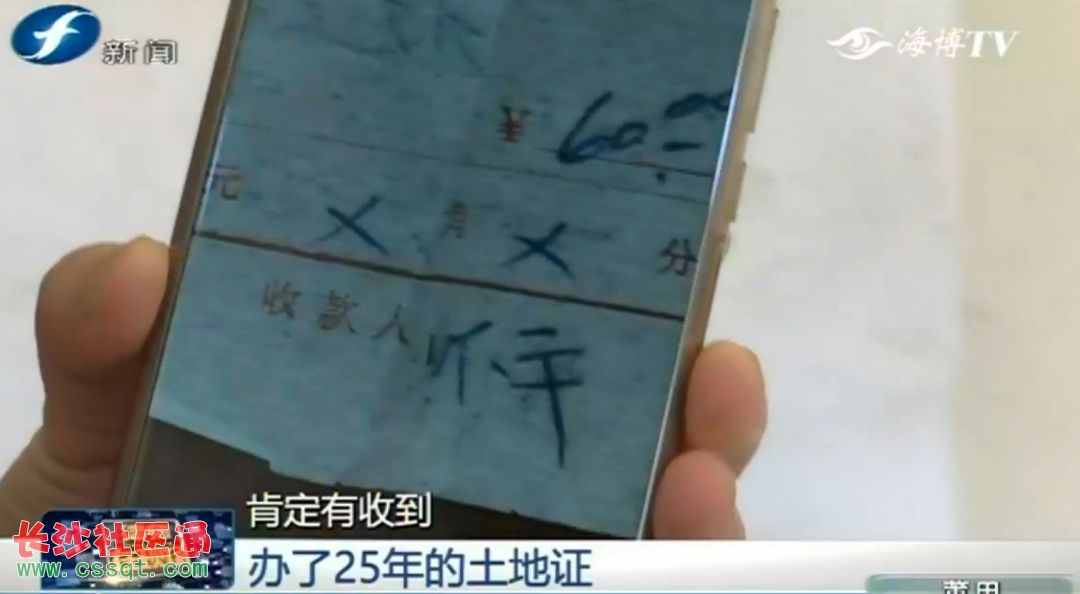 新闻
海博TV
¥ 60.00
元 × 角 × 分
收款人
肯定有收到
办了25年的土地证
长沙社区通
www.cssqt.com
莆田